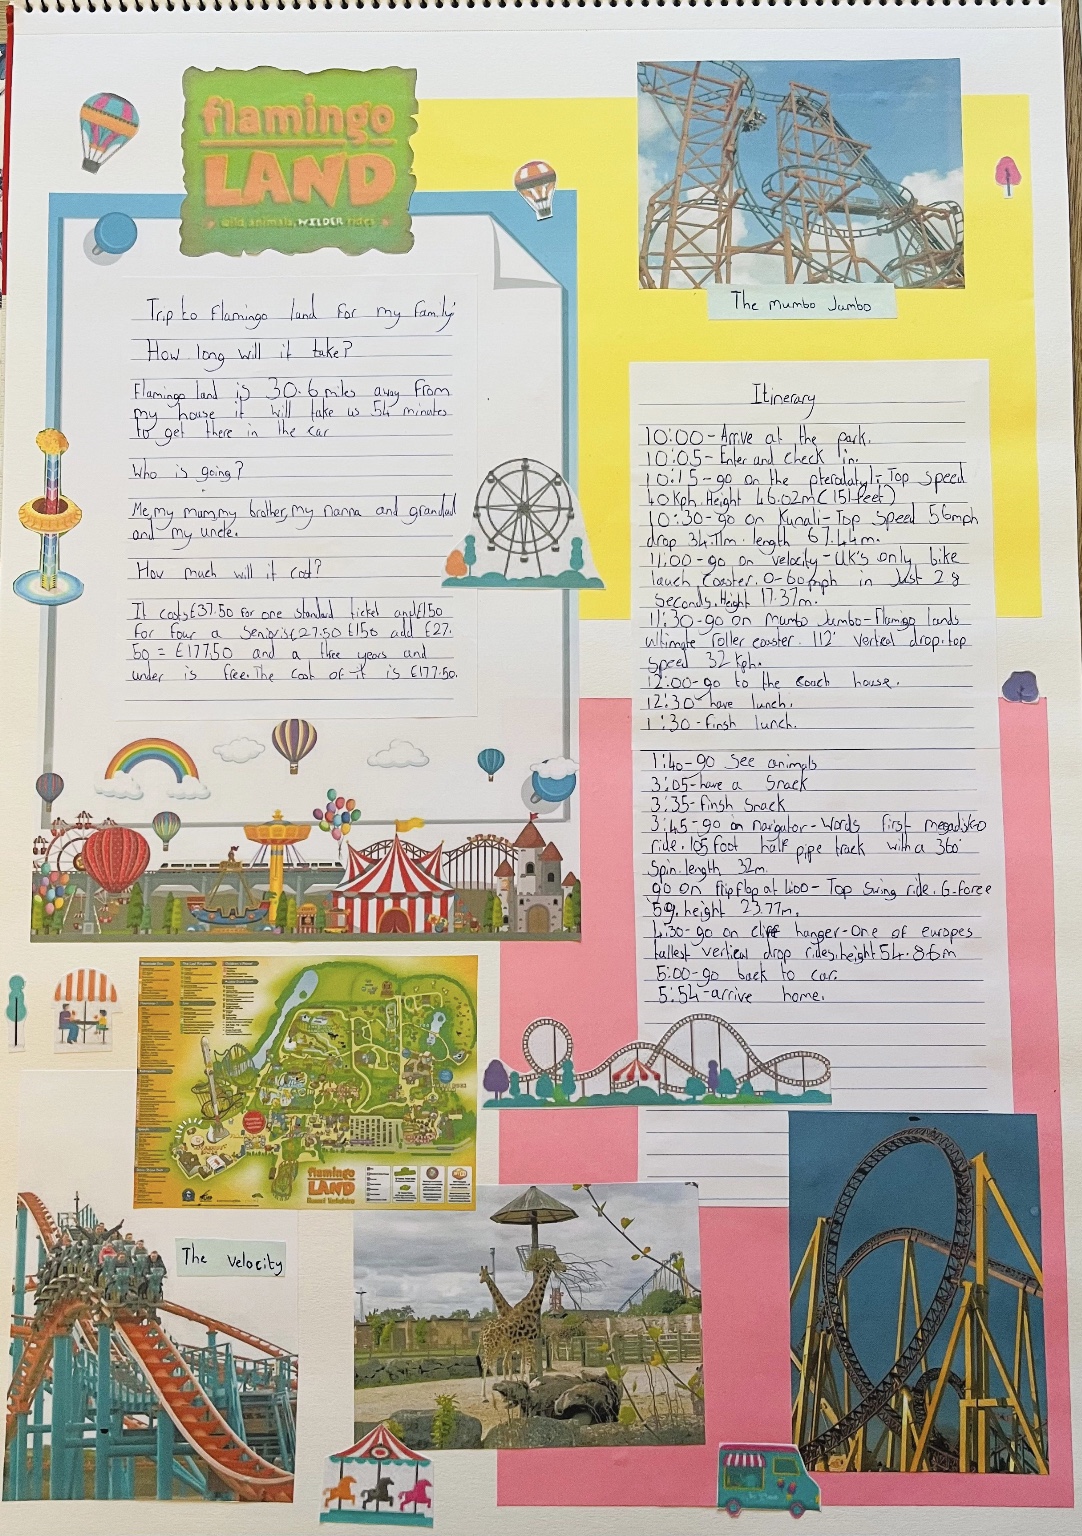 flamingo
LAND
wild animals, WILDER rides
Trip to Flamingo land for my family
How long will it take?
Flamingo land is 30.6 miles away from
my house it will take us 54 minutes
to get there in the car
Who is going?
Me, my mummy brother, my nanna and grandad
and my uncle.
How much will it cost?
It costs £37.50 for one standard ticket and £150
for four a Senior is £27.50 £150 add £27.
50 = £177.50 and a three years and
under is free. The cost of it is £177.50.
The Mumbo Jumbo
Itinerary
10:00-Arrive at the park.
10:05-Enter and check in.
10:15-go on the pterodatyl:-Top Speed
40Kph. Height 46.02m (151 feet)
10:30-go on Kumali-Top Speed 56mph
drop 34.11m. length 67.44m.
11:00-go on velocity-UK's only bike
lauch coaster. 0-60mph in Just 2.8
seconds. Height 17.37m.
11:30-go on mumbo Jumbo-Flamigo lands
ultimate roller coaster. 112° vertical drop. top
speed 32 Kph.
12:00-go to the coach house.
12:30-have lunch.
1:30-finsh lunch.
1:40-go see animals
3:05-have a Snack
3:35-finsh Snack
3:45-go on navigator-Words first megadisk-O
ride. 105 foot half pipe track with a 360°
Spin. length 32m.
go on flip flop at 4:00-Top Swing ride. G.force
5g. height 23.77m.
4:30-go on cliff hanger-One of europes
tallest vertical drop rides. height 54.86m
5:00-go back to car.
5:54-arrive home.
flamingo
LAND
The Velocity